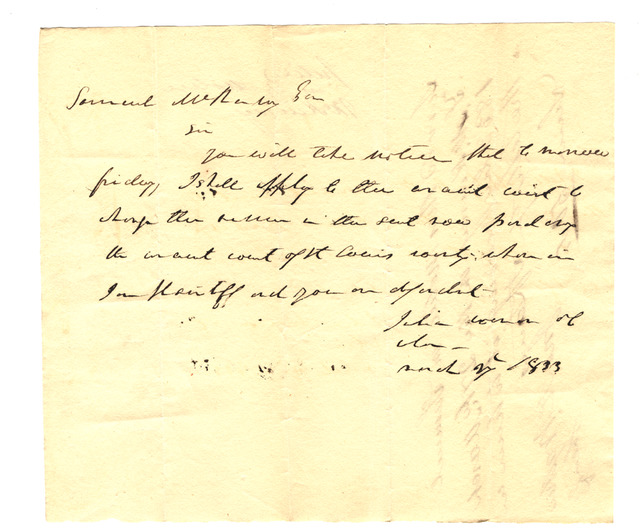 Samuel McKenney Esq
Sir
you will take notice that to morrow
friday, I shall apply to the circuit court to
change the venue in the suit now pending
the circuit court of St Louis county, wherein
I am plaintiff and you are defendant
Julia woman of
march 1833